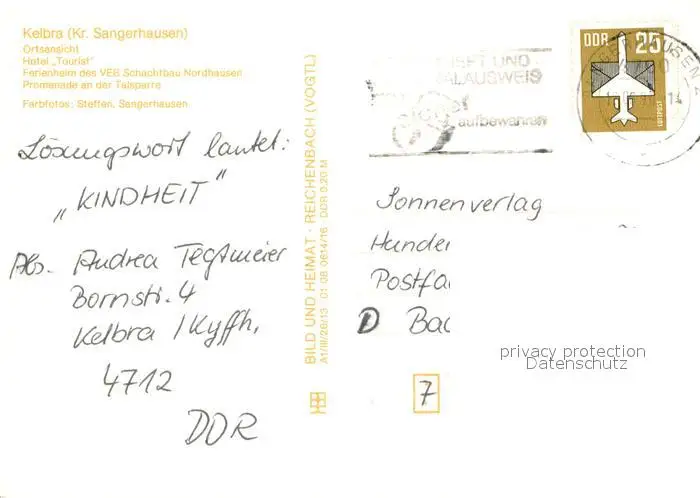 Kelbra (Kr. Sangerhausen)
Ortsansicht
Hotel „Tourist"
Ferienheim des VEB Schachtbau Nordhausen
Promenade an der Talsperre
Farbfotos: Steffen, Sangerhausen
Lösungswort lautet:
„KINDHEIT"
Abs. Andrea Tegtmeier
Bornstr. 4
Kelbra / Kyffh.
4712
DDR
BILD UND HEIMAT · REICHENBACH (VOGTL)
A1/III/26/13 01 08 0614/16 · DDR 0,20 M
DDR 25
LUFTPOST
UND
ALAUSWEIS
aufbewahren
Sonnenverlag
Postfa
D Bad
7
privacy protection
Datenschutz